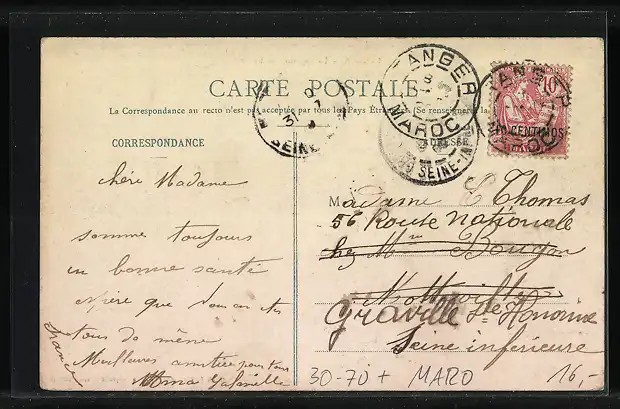 CARTE POSTALE
La Correspondance au recto n'est pas acceptée par tous les Pays Étra
Se renseigner à la
CORRESPONDANCE
ADRESSE
TANGER
MAROC
SEINE
SEINE-INF
TANGER
MAROC
10
10 CENTIMOS
chère Madame
somme toujours
en bonne santé
espère que vous en etes
tous de même
Meilleures amitiés pour tous
France
Madame E Thomas
56 Route Nationale
chez Mme
Graville Ste Honorine
Seine inférieure
30-70 + MARO
16,-